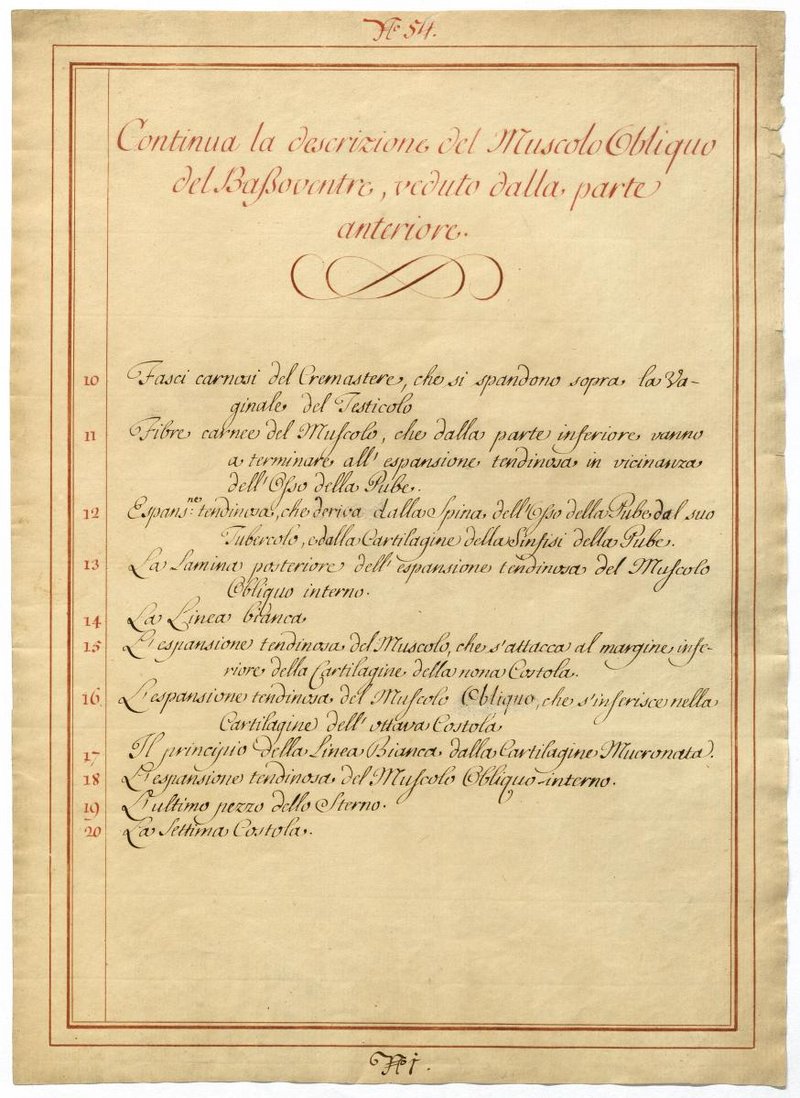 N.º 54.
Continua la descrizione del Muscolo Obliquo
del Baſsoventre, veduto dalla parte
anteriore.
10 Fasci carnosi del Cremastere, che si spandono sopra la Va-
ginale del Testicolo
11 Fibre carnee del Muſcolo, che dalla parte inferiore vanno
a terminare all' espansione tendinosa in vicinanza
dell' Oſso della Pube.
12 Espans:ne tendinosa, che deriva dalla Spina dell' Oſso della Pube dal suo
Tubercolo, e dalla Cartilagine della Sinfisi della Pube.
13 La Lamina posteriore dell' espansione tendinosa del Muſcolo
Obliquo interno.
14 La Linea bianca
15 L' espansione tendinosa del Muscolo, che s'attacca al margine infe-
riore della Cartilagine della nona Costola.
16 L' espansione tendinosa del Muſcolo Obliquo, che s'inferisce nella
Cartilagine dell' ottava Costola
17 Il principio della Linea Bianca dalla Cartilagine Mucronata.
18 L' espansione tendinosa del Muſcolo Obliquo interno.
19 L' ultimo pezzo dello Sterno.
20 La Settima Costola.